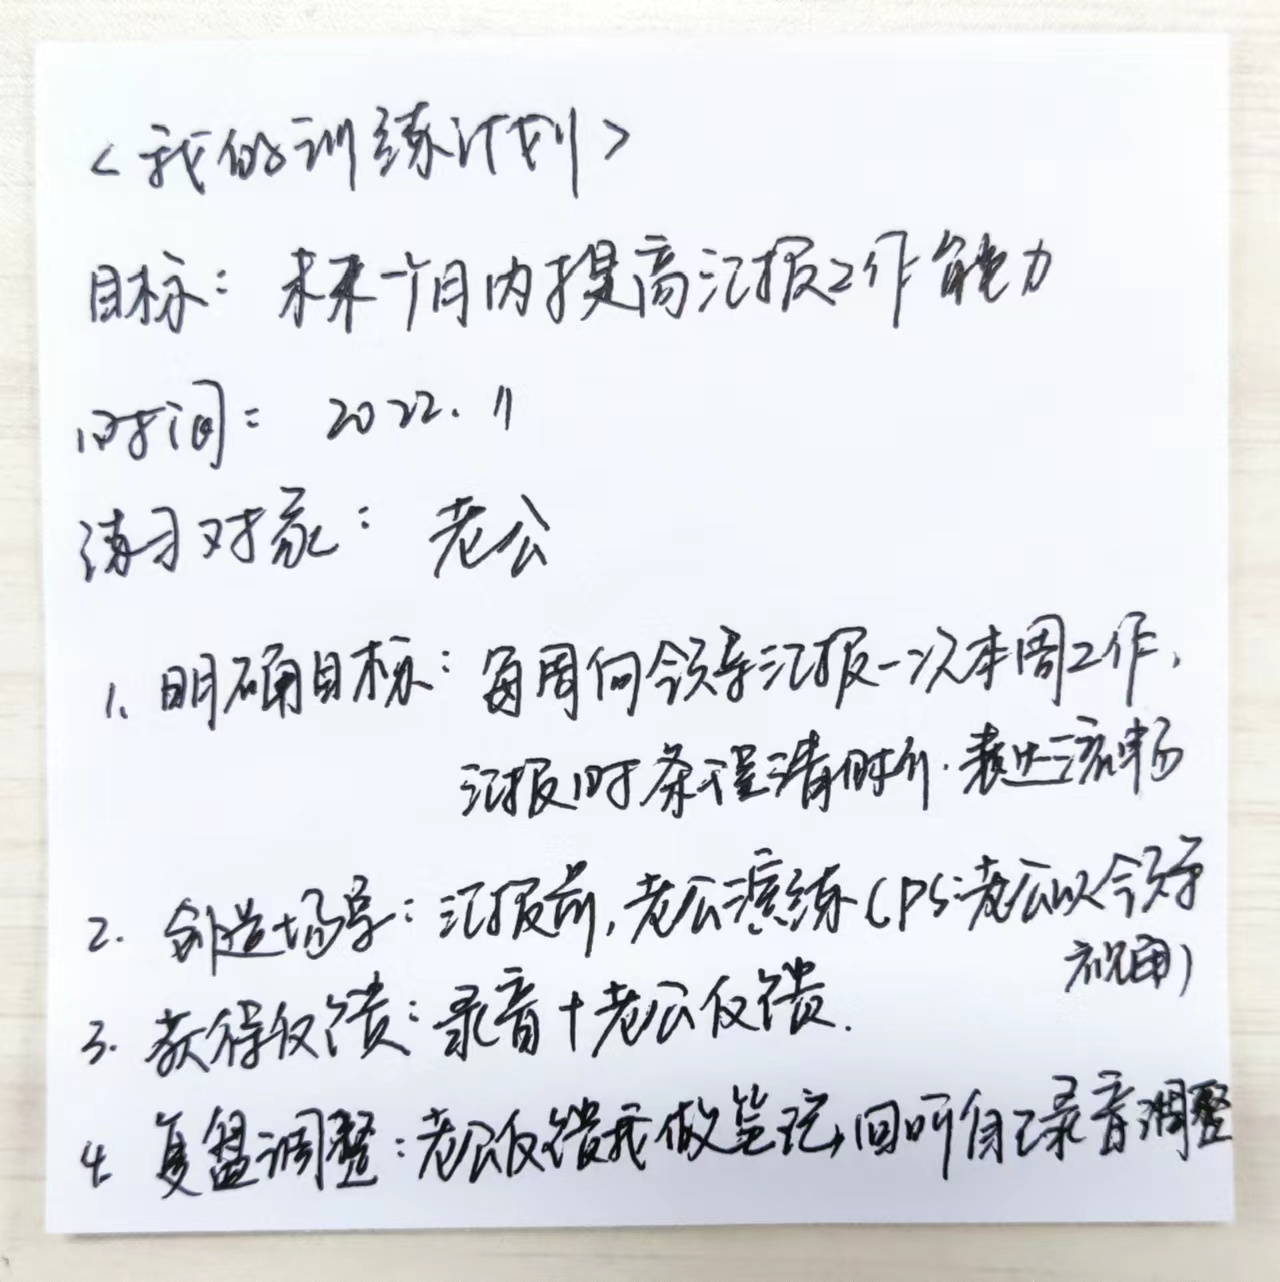 <我的训练计划>
目标：未来一个月内提高汇报工作能力
时间：2022.11
练习对象：老公
1. 明确目标：每周向领导汇报一次本周工作，
汇报时条理清晰，表达流畅
2. 创造场景：汇报前，老公演练（PS:老公以领导
视角）
3. 获得反馈：录音+老公反馈.
4. 复盘调整：老公反馈我做笔记，回听自己录音调整